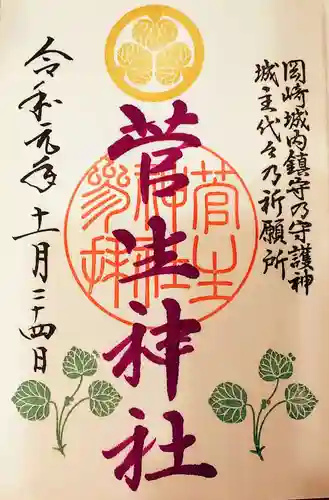 岡崎城内鎮守乃守護神
城主代々乃祈願所
菅生神社
菅生神社参拝
令和元年十一月二十四日